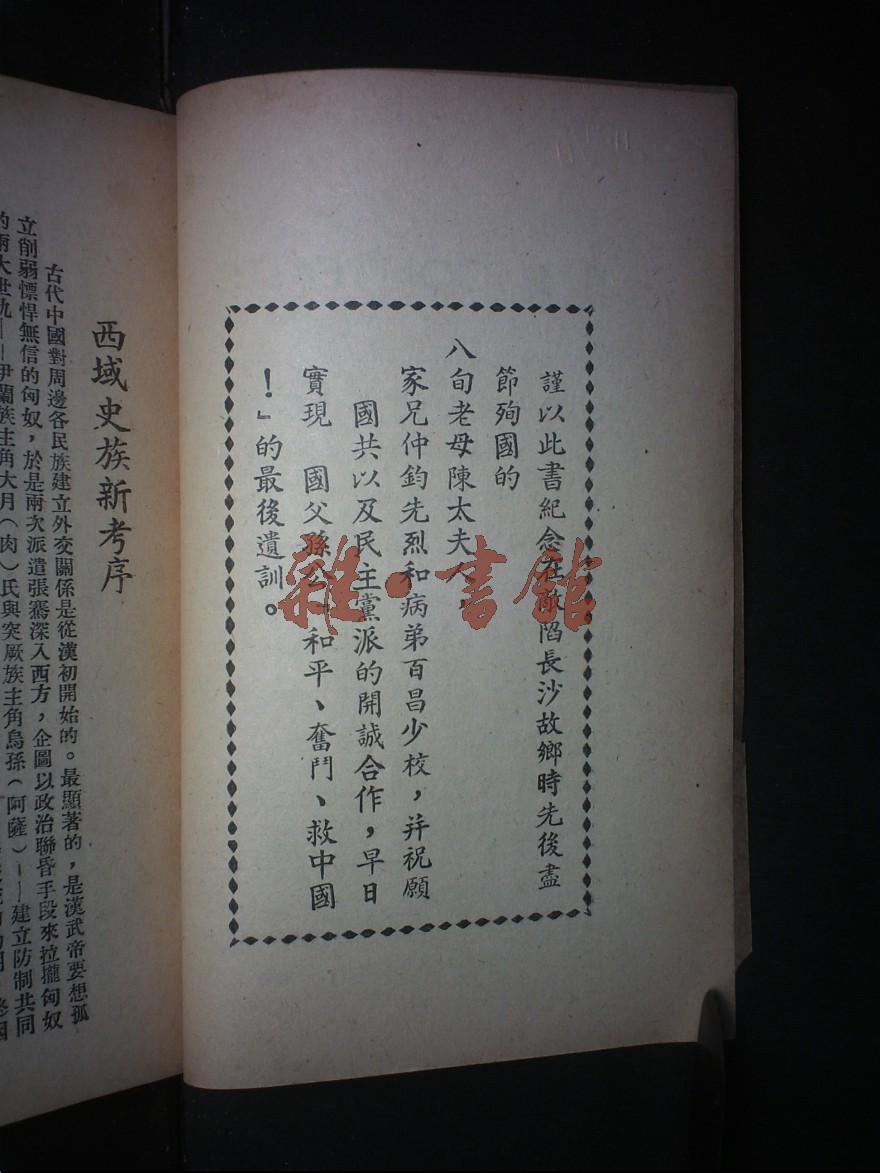 謹以此書紀念在敵陷長沙故鄉時先後盡
節殉國的
八旬老母陳太夫人，
家兄仲鈞先烈和病弟百昌少校，并祝願
國共以及民主黨派的開誠合作，早日
實現　國父孫公『和平、奮鬥、救中國
！』的最後遺訓。
雜·書館
西域史族新考序
古代中國對周邊各民族建立外交關係是從漢初開始的。最顯著的，是漢武帝要想孤
立削弱慓悍無信的匈奴，於是兩次派遣張騫深入西方，企圖以政治聯昏手段來拉攏匈奴
的兩大世仇——伊蘭族主角大月（肉）氏與突厥族主角烏孫（阿薩）——建立防制共同